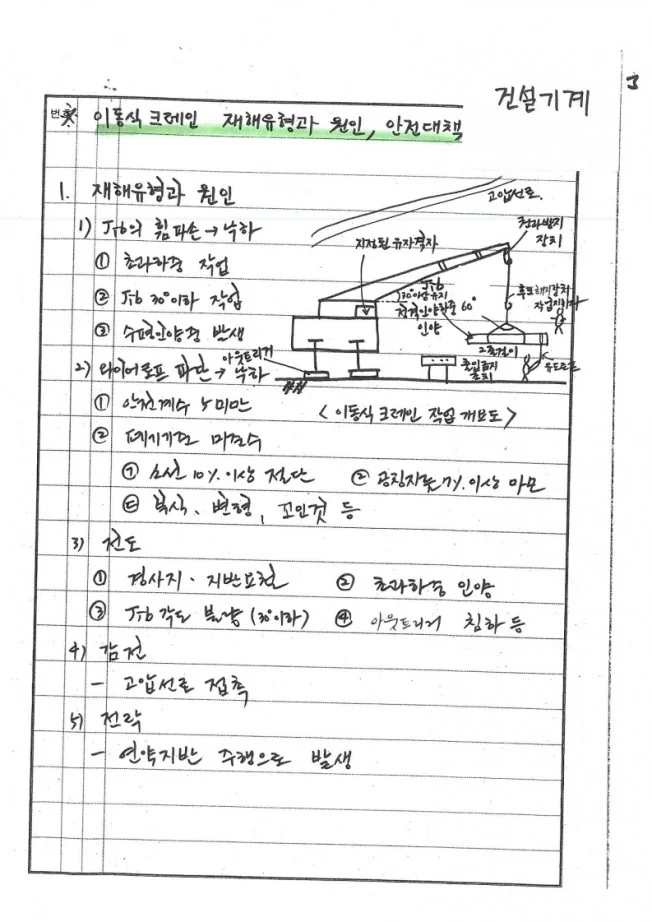 건설기계
번호
이동식 크레인 재해유형과 원인, 안전대책
1. 재해유형과 원인
1) Jib의 휨파손→낙하
① 초과하중 작업
② Jib 30°이하 작업
③ 수평인양중 발생
2) 와이어로프 파단→낙하
① 안전계수 5미만
② 폐기기준 미준수
㉠ 소선 10%이상 절단 ② 공칭지름 7%이상 마모
㉢ 부식, 변형, 꼬인것 등
3) 전도
① 경사지·지반요철 ② 초과하중 인양
③ Jib 각도 불량(30°이하) ④ 아웃트리거 침하 등
4) 감전
- 고압선로 접촉
5) 전락
- 연약지반 주행으로 발생
고압선로
지정된 유자격자
장치
Jib
30°이상유지
정격인양하중 60°
인양
후크해지장치
2줄걸이
출입금지
유도로프
아웃트리거
<이동식 크레인 작업 개요도>